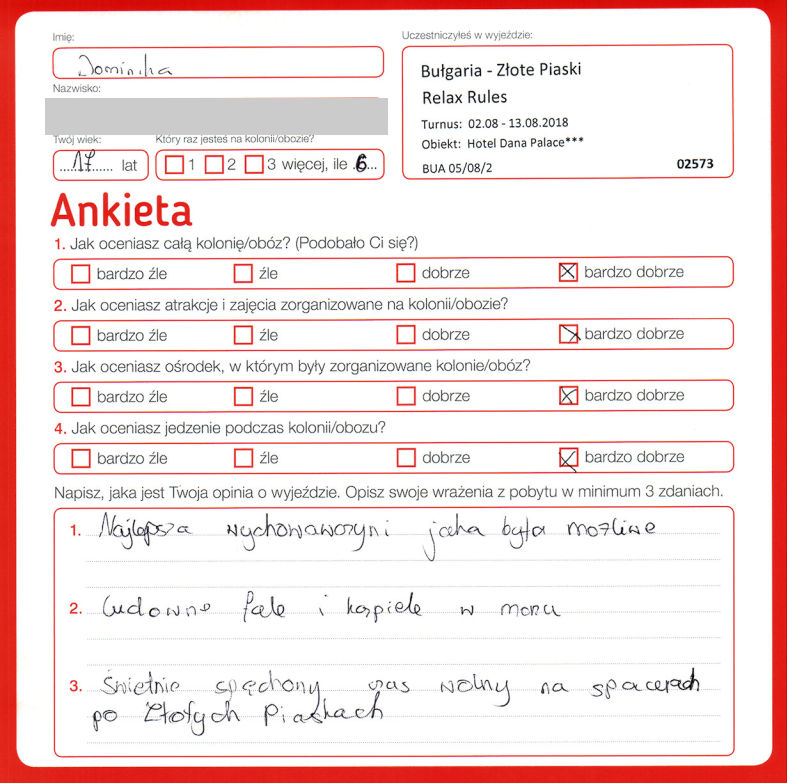 Imię:
Dominika
Nazwisko:
Twój wiek:
17 lat
Który raz jesteś na kolonii/obozie?
1 2 3 więcej, ile 6
Uczestniczyłeś w wyjeździe:
Bułgaria - Złote Piaski
Relax Rules
Turnus: 02.08 - 13.08.2018
Obiekt: Hotel Dana Palace***
BUA 05/08/2 02573
Ankieta
1. Jak oceniasz całą kolonię/obóz? (Podobało Ci się?)
bardzo źle źle dobrze bardzo dobrze
2. Jak oceniasz atrakcje i zajęcia zorganizowane na kolonii/obozie?
bardzo źle źle dobrze bardzo dobrze
3. Jak oceniasz ośrodek, w którym były zorganizowane kolonie/obóz?
bardzo źle źle dobrze bardzo dobrze
4. Jak oceniasz jedzenie podczas kolonii/obozu?
bardzo źle źle dobrze bardzo dobrze
Napisz, jaka jest Twoja opinia o wyjeździe. Opisz swoje wrażenia z pobytu w minimum 3 zdaniach.
1. Najlepsza wychowawczyni jaka była możliwe
2. Cudowne fale i kąpiele w morzu
3. Świetnie spędzony czas wolny na spacerach
po Złotych Piaskach